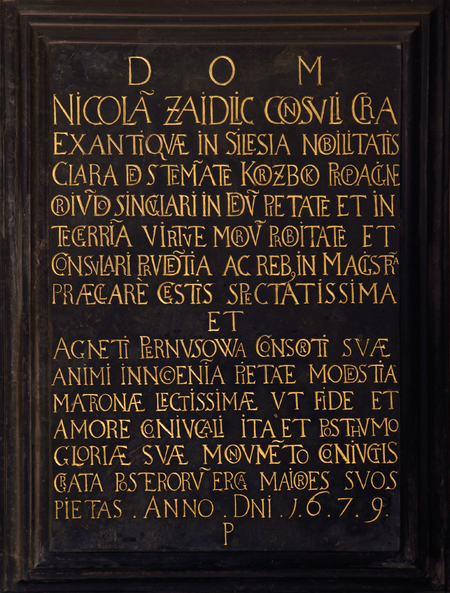 D O M
NICOLÃ ZAIDLIC CONSVLI CRA
EX ANTIQVÆ IN SILESIA NOBILITATIS
CLARA DE STEMATE KORZBOK PROPAGINE
ORIVDO SINGVLARI IN DEV̄ PIETATE ET IN
TEGERRĪA VIRTVTE MORV̄ PROBITATE ET
CONSVLARI PRVDĒTIA AC REB, IN MAGISTRA
PRÆCLARÈ GESTIS SPECTATISSIMA
ET
AGNETI PERNVSOWA CONSORTI SVÆ
ANIMI INNOCENĪA PIETAE MODESTIA
MATRONÆ LECTISSIMÆ VT FIDE ET
AMORE CONIVGALI ITA ET POSTHVMO
GLORIÆ SVÆ MONVMĒTO CONIVGTIS
GRATA POSTERORV̄ ERGA MAIORES SVOS
PIETAS . ANNO . DNI . 1.6.7.9.
P